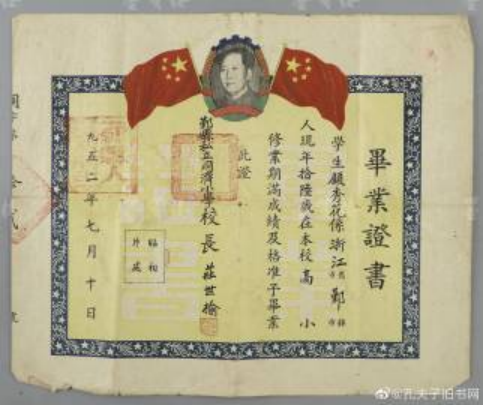 畢業證書
學生顧秀花係浙江省鄞縣市
人現年拾陸歲在本校高小
修業期滿成績及格准予畢業
此證
鄞縣私立同濟小學校長 莊世掄
貼相片處
一九五二年七月十日
@孔夫子旧书网